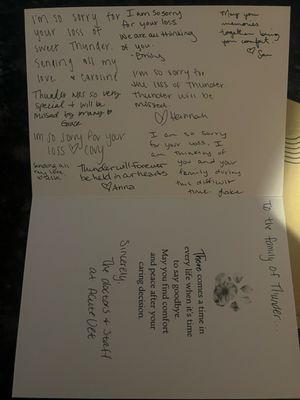 I'm so sorry for
your loss of
sweet Thunder.
Sending all my
love ♡ Caroline
I am so sorry
for your loss
We are all thinking
of you.
May you
memories
together bring
you comfort.
I'm so sorry for
the loss of Thunder
Thunder will be
missed.
♡ Hannah
Thunder was so very
special & will be
missed by many ♡
Grace
Im so sorry for your
loss ♡
Sending all
my love
Thunder will forever
be held in our hearts
♡ Anna
I am so sorry
for your loss. I
am thinking of
you and your
family during
this difficult
time
To the family of Thunder...
There comes a time in
every life when it's time
to say goodbye.
May you find comfort
and peace after your
caring decision.
Sincerely,
The doctors & staff
at Acute Vet